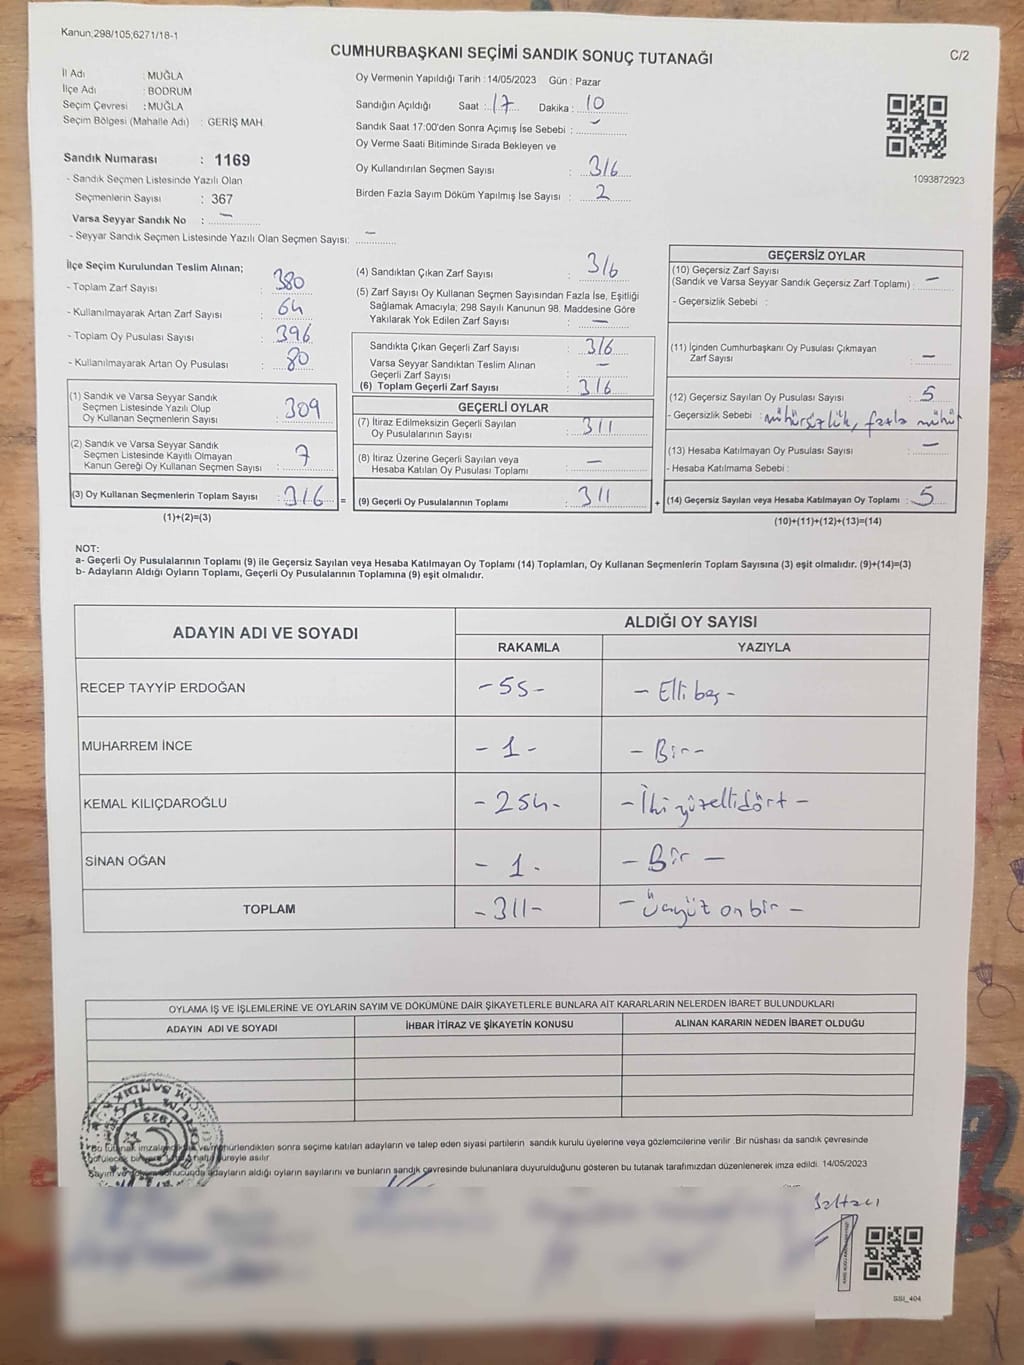 Kanun;298/105;6271/18-1
CUMHURBAŞKANI SEÇİMİ SANDIK SONUÇ TUTANAĞI
C/2
İl Adı : MUĞLA
İlçe Adı : BODRUM
Seçim Çevresi : MUĞLA
Seçim Bölgesi (Mahalle Adı) : GERİŞ MAH.
Sandık Numarası : 1169
- Sandık Seçmen Listesinde Yazılı Olan
Seçmenlerin Sayısı : 367
Varsa Seyyar Sandık No : -
- Seyyar Sandık Seçmen Listesinde Yazılı Olan Seçmen Sayısı: -
Oy Vermenin Yapıldığı Tarih : 14/05/2023 Gün : Pazar
Sandığın Açıldığı Saat : 17 Dakika : 10
Sandık Saat 17:00'den Sonra Açımış İse Sebebi : -
Oy Verme Saati Bitiminde Sırada Bekleyen ve
Oy Kullandırılan Seçmen Sayısı : 316
Birden Fazla Sayım Döküm Yapılmış İse Sayısı : 2
1093872923
İlçe Seçim Kurulundan Teslim Alınan;
- Toplam Zarf Sayısı : 380
- Kullanılmayarak Artan Zarf Sayısı : 64
- Toplam Oy Pusulası Sayısı : 396
- Kullanılmayarak Artan Oy Pusulası : 80
(1) Sandık ve Varsa Seyyar Sandık
Seçmen Listesinde Yazılı Olup
Oy Kullanan Seçmenlerin Sayısı : 309
(2) Sandık ve Varsa Seyyar Sandık
Seçmen Listesinde Kayıtlı Olmayan
Kanun Gereği Oy Kullanan Seçmen Sayısı : 7
(3) Oy Kullanan Seçmenlerin Toplam Sayısı : 316 =
(1)+(2)=(3)
(4) Sandıktan Çıkan Zarf Sayısı : 316
(5) Zarf Sayısı Oy Kullanan Seçmen Sayısından Fazla İse, Eşitliği
Sağlamak Amacıyla; 298 Sayılı Kanunun 98. Maddesine Göre
Yakılarak Yok Edilen Zarf Sayısı : -
Sandıkta Çıkan Geçerli Zarf Sayısı : 316
Varsa Seyyar Sandıktan Teslim Alınan
Geçerli Zarf Sayısı : -
(6) Toplam Geçerli Zarf Sayısı : 316
GEÇERLİ OYLAR
(7) İtiraz Edilmeksizin Geçerli Sayılan
Oy Pusulalarının Sayısı : 311
(8) İtiraz Üzerine Geçerli Sayılan veya
Hesaba Katılan Oy Pusulası Toplamı : -
(9) Geçerli Oy Pusulalarının Toplamı : 311 +
GEÇERSİZ OYLAR
(10) Geçersiz Zarf Sayısı
(Sandık ve Varsa Seyyar Sandık Geçersiz Zarf Toplamı) : -
- Geçersizlik Sebebi :
(11) İçinden Cumhurbaşkanı Oy Pusulası Çıkmayan
Zarf Sayısı : -
(12) Geçersiz Sayılan Oy Pusulası Sayısı : 5
- Geçersizlik Sebebi : mühürsüzlük, fazla mühür
(13) Hesaba Katılmayan Oy Pusulası Sayısı : -
- Hesaba Katılmama Sebebi :
(14) Geçersiz Sayılan veya Hesaba Katılmayan Oy Toplamı : 5
(10)+(11)+(12)+(13)=(14)
NOT:
a- Geçerli Oy Pusulalarının Toplamı (9) ile Geçersiz Sayılan veya Hesaba Katılmayan Oy Toplamı (14) Toplamları, Oy Kullanan Seçmenlerin Toplam Sayısına (3) eşit olmalıdır. (9)+(14)=(3)
b- Adayların Aldığı Oyların Toplamı, Geçerli Oy Pusulalarının Toplamına (9) eşit olmalıdır.
ADAYIN ADI VE SOYADI
ALDIĞI OY SAYISI
RAKAMLA YAZIYLA
RECEP TAYYİP ERDOĞAN -55- - Elli beş -
MUHARREM İNCE - 1 - - Bir -
KEMAL KILIÇDAROĞLU - 254 - - İkiyüzellidört -
SİNAN OĞAN - 1 - - Bir -
TOPLAM -311- - Üçyüz on bir -
OYLAMA İŞ VE İŞLEMLERİNE VE OYLARIN SAYIM VE DÖKÜMÜNE DAİR ŞİKAYETLERLE BUNLARA AİT KARARLARIN NELERDEN İBARET BULUNDUKLARI
ADAYIN ADI VE SOYADI İHBAR İTİRAZ VE ŞİKAYETİN KONUSU ALINAN KARARIN NEDEN İBARET OLDUĞU
1923
Bu tutanak ve mühürlendikten sonra seçime katılan adayların ve talep eden siyasi partilerin sandık kurulu üyelerine veya gözlemcilerine verilir .Bir nüshası da sandık çevresinde
süreyle asılır
adayların aldığı oyların sayılarını ve bunların sandık çevresinde bulunanlara duyurulduğunu gösteren bu tutanak tarafımızdan düzenlenerek imza edildi. 14/05/2023
SSI_404